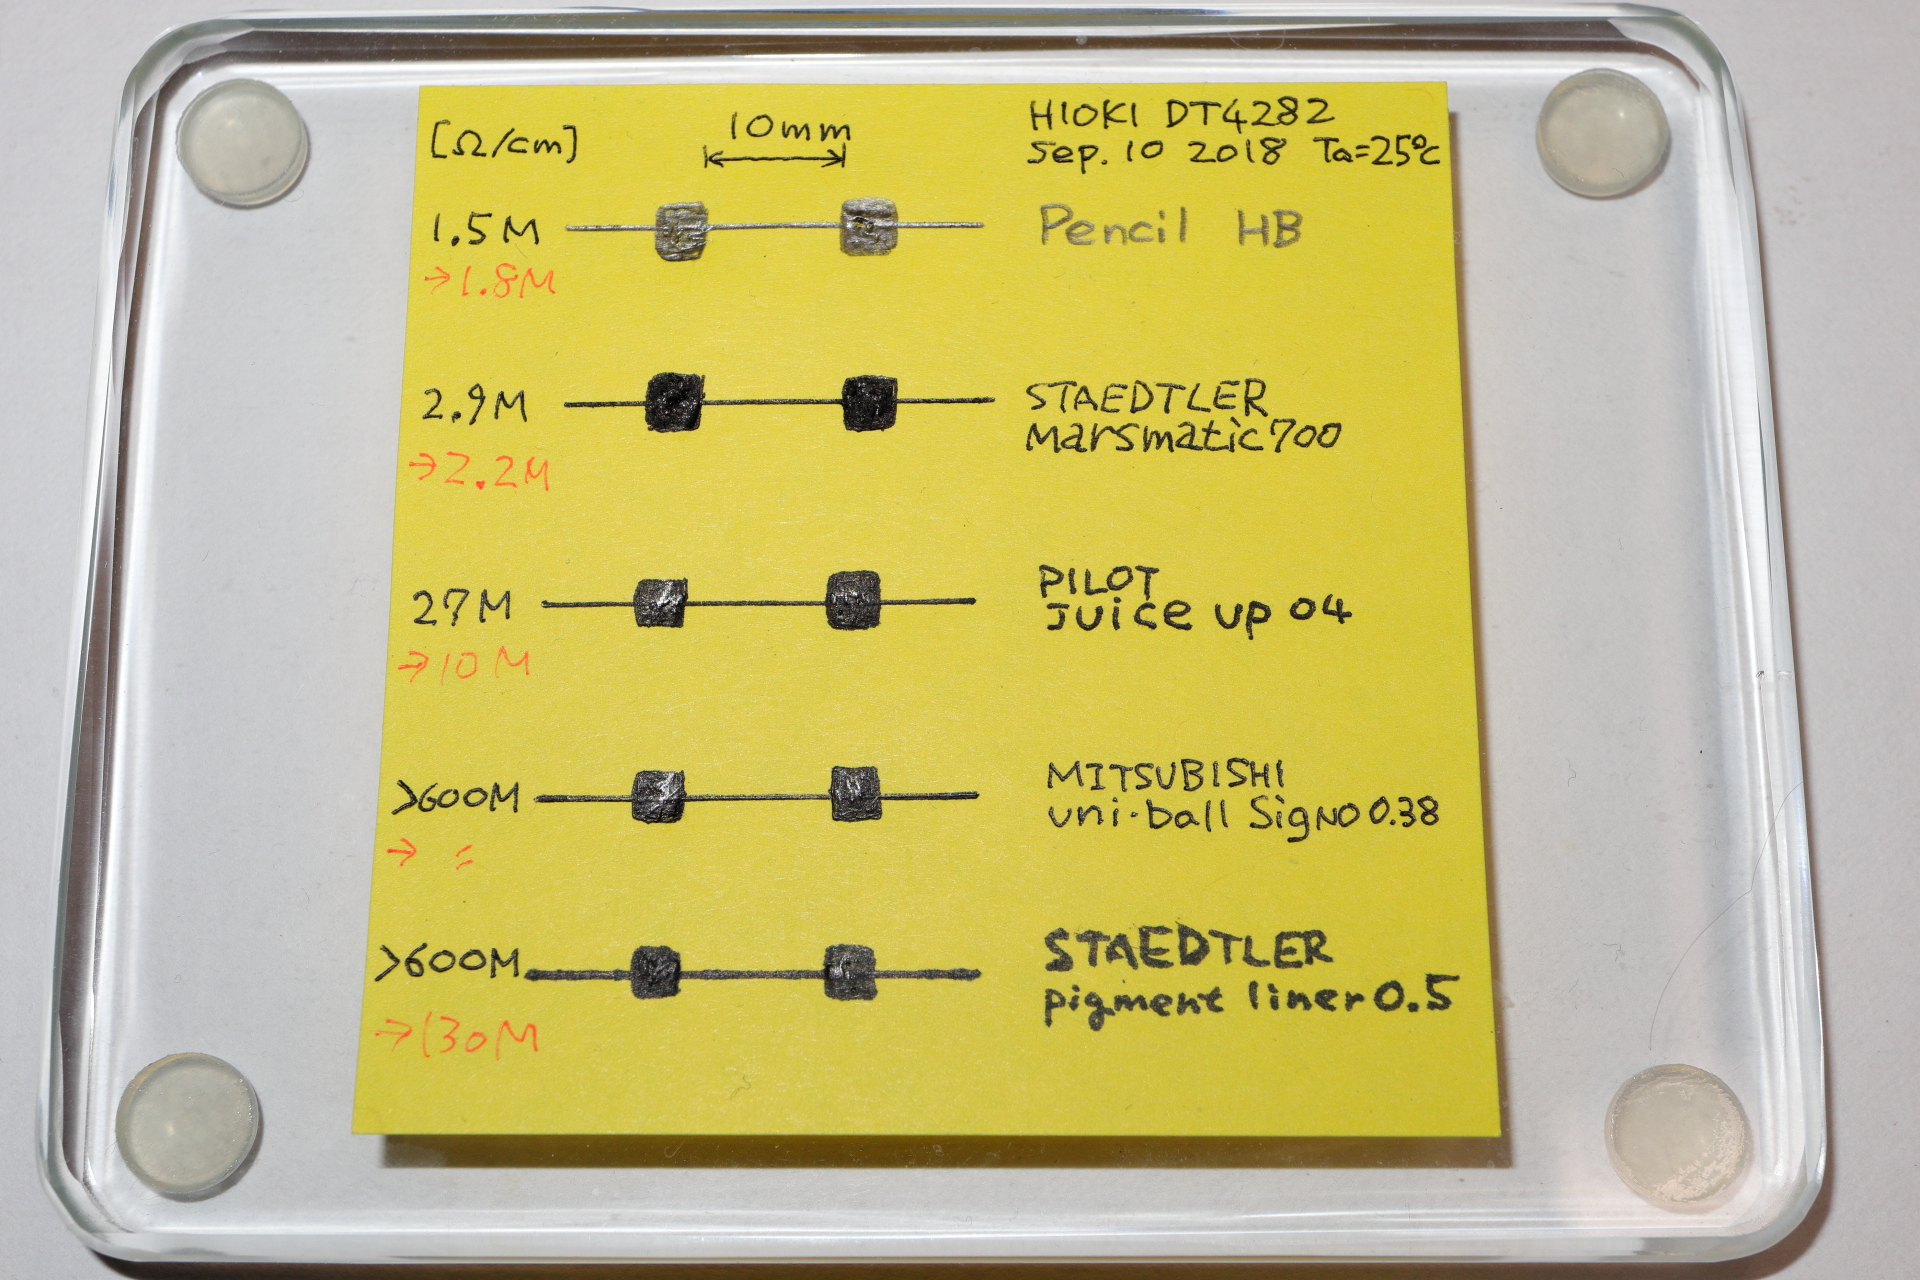 [Ω/cm]
10mm
HIOKI DT4282
Sep. 10 2018 Ta=25℃
1.5M
Pencil HB
→1.8M
2.9M
STAEDTLER
Marsmatic700
→2.2M
27M
PILOT
Juice up 04
→10M
>600M
MITSUBISHI
uni-ball SigNO 0.38
→ =
>600M
STAEDTLER
pigment liner 0.5
→130M